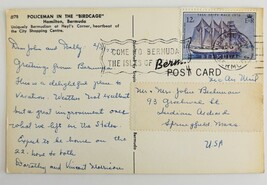 1079 POLICEMAN IN THE "BIRDCAGE"
Hamilton, Bermuda
Uniquely Bermudian at Heyl's Corner, heartbeat of
the City Shopping Centre.
Dear John and Polly
Greetings from Bermuda
This is a delightful place to
vacation. Weather not excellent
but a great improvement over
what we left in the States.
Expect to be home on the
22. Love to both
Dorothy and Vincent Morrison
COME TO BERMUDA
THE ISLES OF
Bermuda
POST CARD
Via Air Mail
Mr & Mrs John
93
Indian Orchard
Springfield Mass
USA
12c
BERMUDA